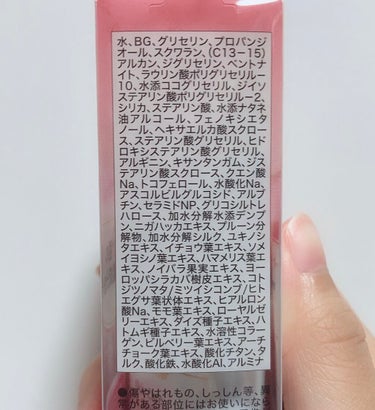 水、BG、グリセリン、プロパンジ
オール、スクワラン、(C13-15)
アルカン、ジグリセリン、ベントナ
イト、ラウリン酸ポリグリセリル-
10、水添ココグリセリル、ジイソ
ステアリン酸ポリグリセリル-2、
シリカ、ステアリン酸、水添ナタネ
油アルコール、フェノキシエタ
ノール、ヘキサエルカ酸スクロー
ス、ステアリン酸グリセリル、ヒド
ロキシステアリン酸グリセリル、
アルギニン、キサンタンガム、ジス
テアリン酸スクロース、クエン酸
Na、トコフェロール、水酸化Na、
アスコルビルグルコシド、アルブ
チン、セラミドNP、グリコシルトレ
ハロース、加水分解水添デンプ
ン、ニガハッカエキス、プルーン分
解物、加水分解シルク、ユキノシ
タエキス、イチョウ葉エキス、ソメ
イヨシノ葉エキス、ハマメリス葉エ
キス、ノイバラ果実エキス、ヨー
ロッパシラカバ樹皮エキス、コト
ジツノマタ/ミツイシコンブ/ヒト
エグサ葉状体エキス、ヒアルロン
酸Na、モモ葉エキス、ローヤル
ゼリーエキス、ダイズ種子エキス、
ハトムギ種子エキス、水溶性コラ
ーゲン、ビルベリー葉エキス、アーテ
チョーク葉エキス、酸化チタン、タ
ルク、酸化鉄、水酸化Al、アルミナ
●傷やはれもの、しっしん等、異
常がある部位にはお使いになら